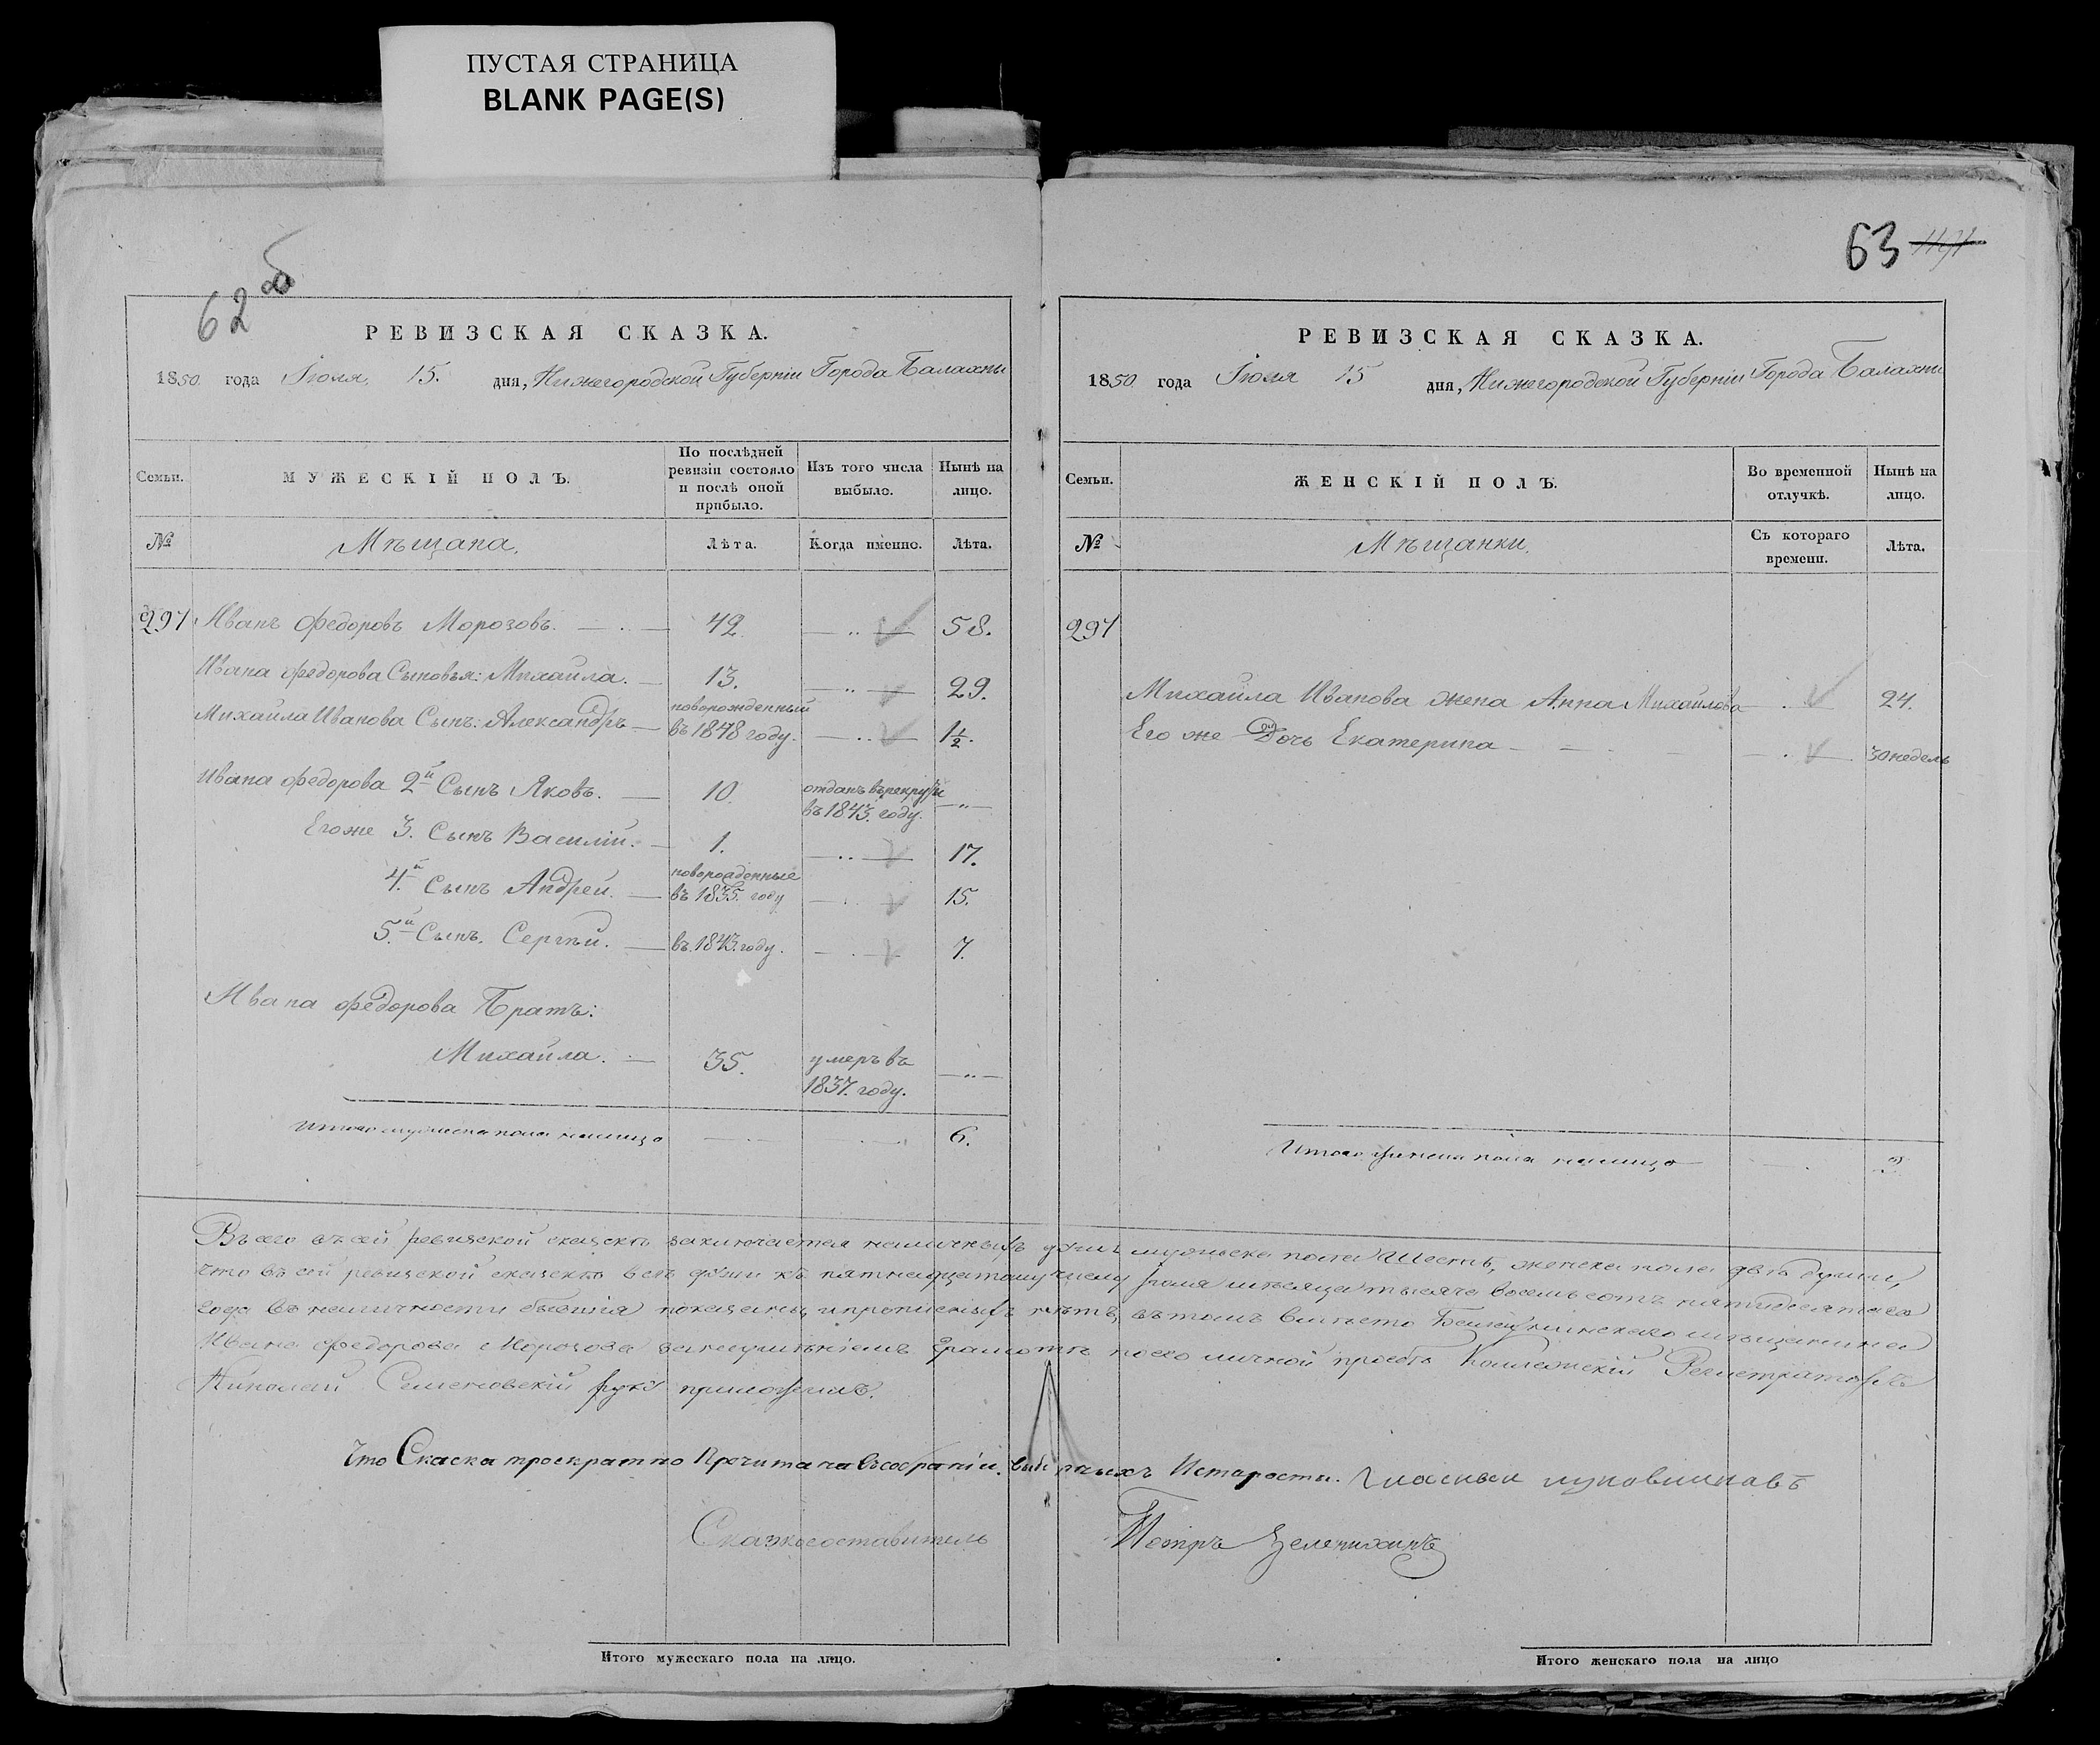 ПУСТАЯ СТРАНИЦА
BLANK PAGE(S)
62 об
РЕВИЗСКАЯ СКАЗКА.
1850 года Іюля 15. дня, Нижегородской Губерніи Города Балахны
Семьи.
МУЖЕСКІЙ ПОЛЪ.
По послѣдней ревизіи состояло и послѣ оной прибыло.
Изъ того числа выбыло.
Нынѣ на лицо.
№ Мѣщана. Лѣта. Когда именно. Лѣта.
297 Иванъ Федоровъ Морозовъ. 42. 58.
Ивана Федорова Сыновья: Михайла. 13. 29.
Михайла Иванова Сынъ: Александръ новорожденный въ 1848 году. 1 1/2.
Ивана Федорова 2й Сынъ Яковъ. 10. отданъ въ рекруты въ 1843. году.
Его же 3. Сынъ Василій. 1. 17.
4.й Сынъ Андрей. новорожденные въ 1835. году 15.
5.й Сынъ. Сергѣй. въ 1843. году. 7.
Ивана Федорова Братъ:
Михайла. 35. умеръ въ 1837. году.
Итого мужеска пола налицо 6.
63 1191
РЕВИЗСКАЯ СКАЗКА.
1850 года Іюля 15 дня, Нижегородской Губерніи Города Балахны
Семьи.
ЖЕНСКІЙ ПОЛЪ.
Во временной отлучкѣ.
Нынѣ на лицо.
№ Мѣщанки. Съ котораго времени. Лѣта.
297
Михайла Иванова жена Анна Михайлова 24.
Его же Дочь Екатерина 30 недель
Итого женска пола налицо 2
Всего въ сей ревизской сказкѣ заключается наличныхъ душъ мужеска пола Шесть, женска пола двѣ души,
что въ сей ревизской сказкѣ всѣ души къ пятнадцатому числу Іюля мѣсяца тысяча восемь сотъ пятидесятаго
года въ наличности бывшія показаны, и прописныхъ нѣтъ, въ томъ вмѣсто Балахнинскаго мѣщанина
Ивана Федорова Морозова за неумѣніемъ Грамотѣ по его личной прозбѣ Коллежскій Регистраторъ
Николай Семеновскій руку приложилъ.
Что Скаска троекратно Прочитана въ собраніи. Истарости. Гласный
Сказкосоставитель Петръ Зеленихинъ
Итого мужескаго пола на лицо.
Итого женскаго пола на лицо